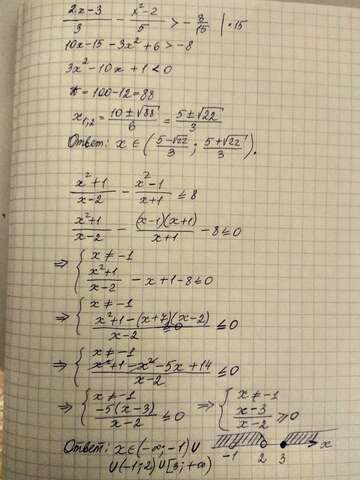 2x-3/3 - x²-2/5 > -8/15 | ·15
10x-15-3x²+6>-8
3x²-10x+1<0
D=100-12=88
x₁,₂=10±√88/6=5±√22/3
Ответ: x∈(5-√22/3; 5+√22/3).
x²+1/x-2 - x²-1/x+1 ≤8
x²+1/x-2 - (x-1)(x+1)/x+1 -8≤0
⇒ { x≠-1
x²+1/x-2 -x+1-8≤0
⇒ { x≠-1
x²+1-(x+7)(x-2)/x-2 ≤0
⇒ { x≠-1
x²+1-x²-5x+14/x-2 ≤0
⇒ { x≠-1 ⇒ { x≠-1
-5(x-3)/x-2 ≤0 x-3/x-2 ≥0
Ответ: x∈(-∞;-1)∪ -1 2 3 x
∪(-1;2)∪[3;+∞)